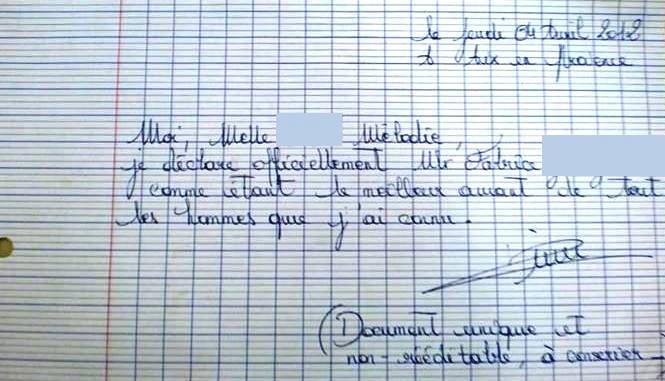 le jeudi 04 Avril 2012
à Aix en Provence
Moi, Melle Mélodie,
je déclare officiellement Mr Patrice
comme étant le meilleur amant "de" tout
les hommes que j'ai connu.
(Document unique et
non-rééditable, à conserver